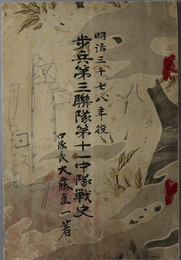 明治三十七八年役
步兵第三聯隊第十一中隊戰史
中隊長大藤直一著